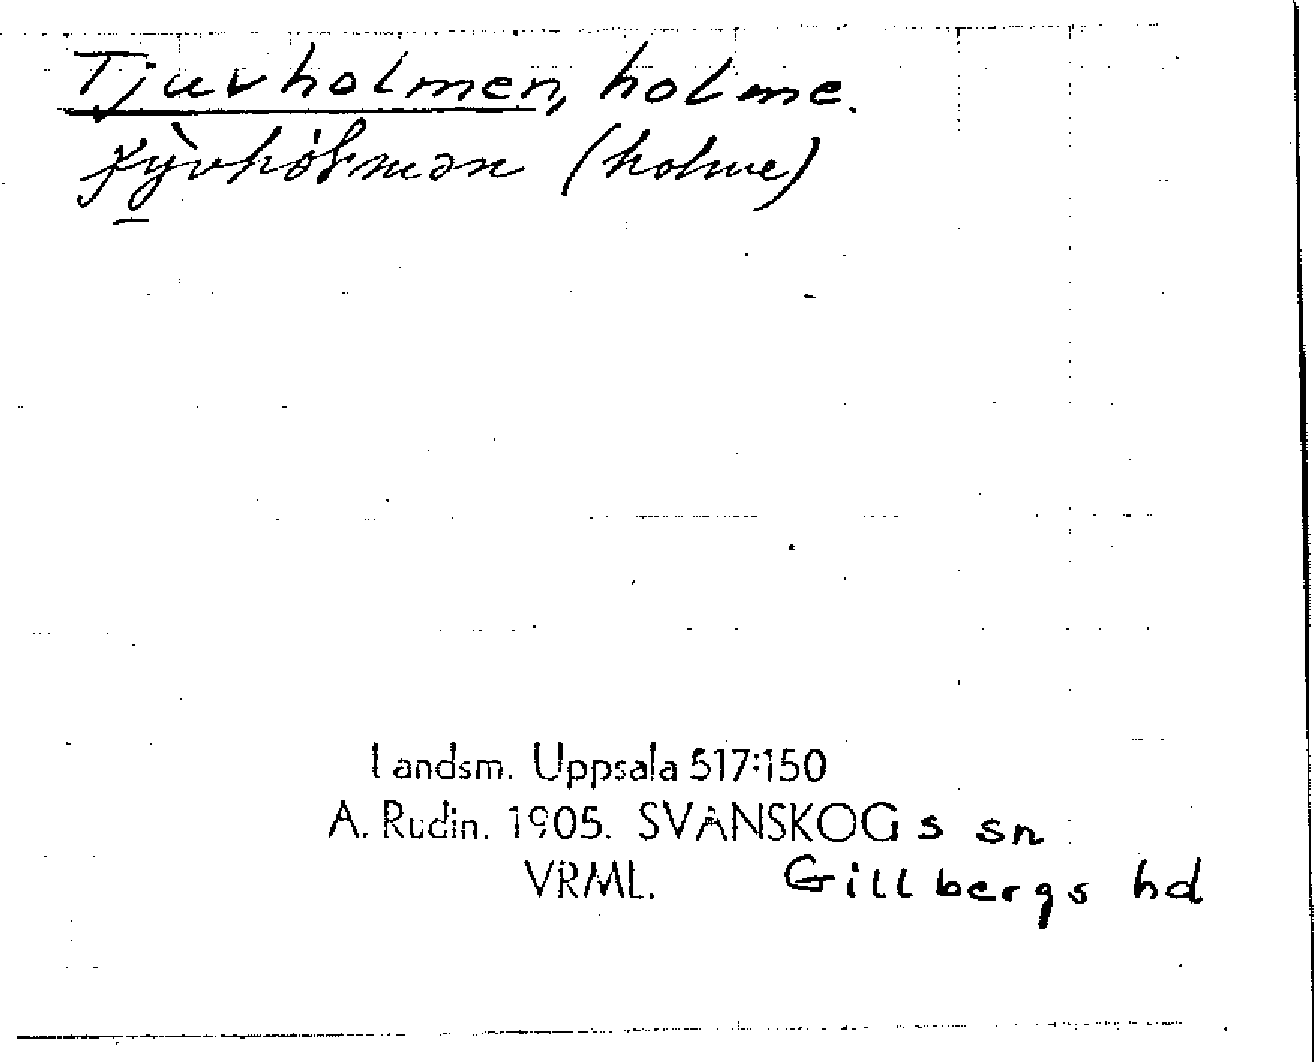 Tjuvholmen, holme.
(holme)
Landsm. Uppsala 517:150
A. Rudin. 1905. SVANSKOGs sn
VRML. Gillbergs hd